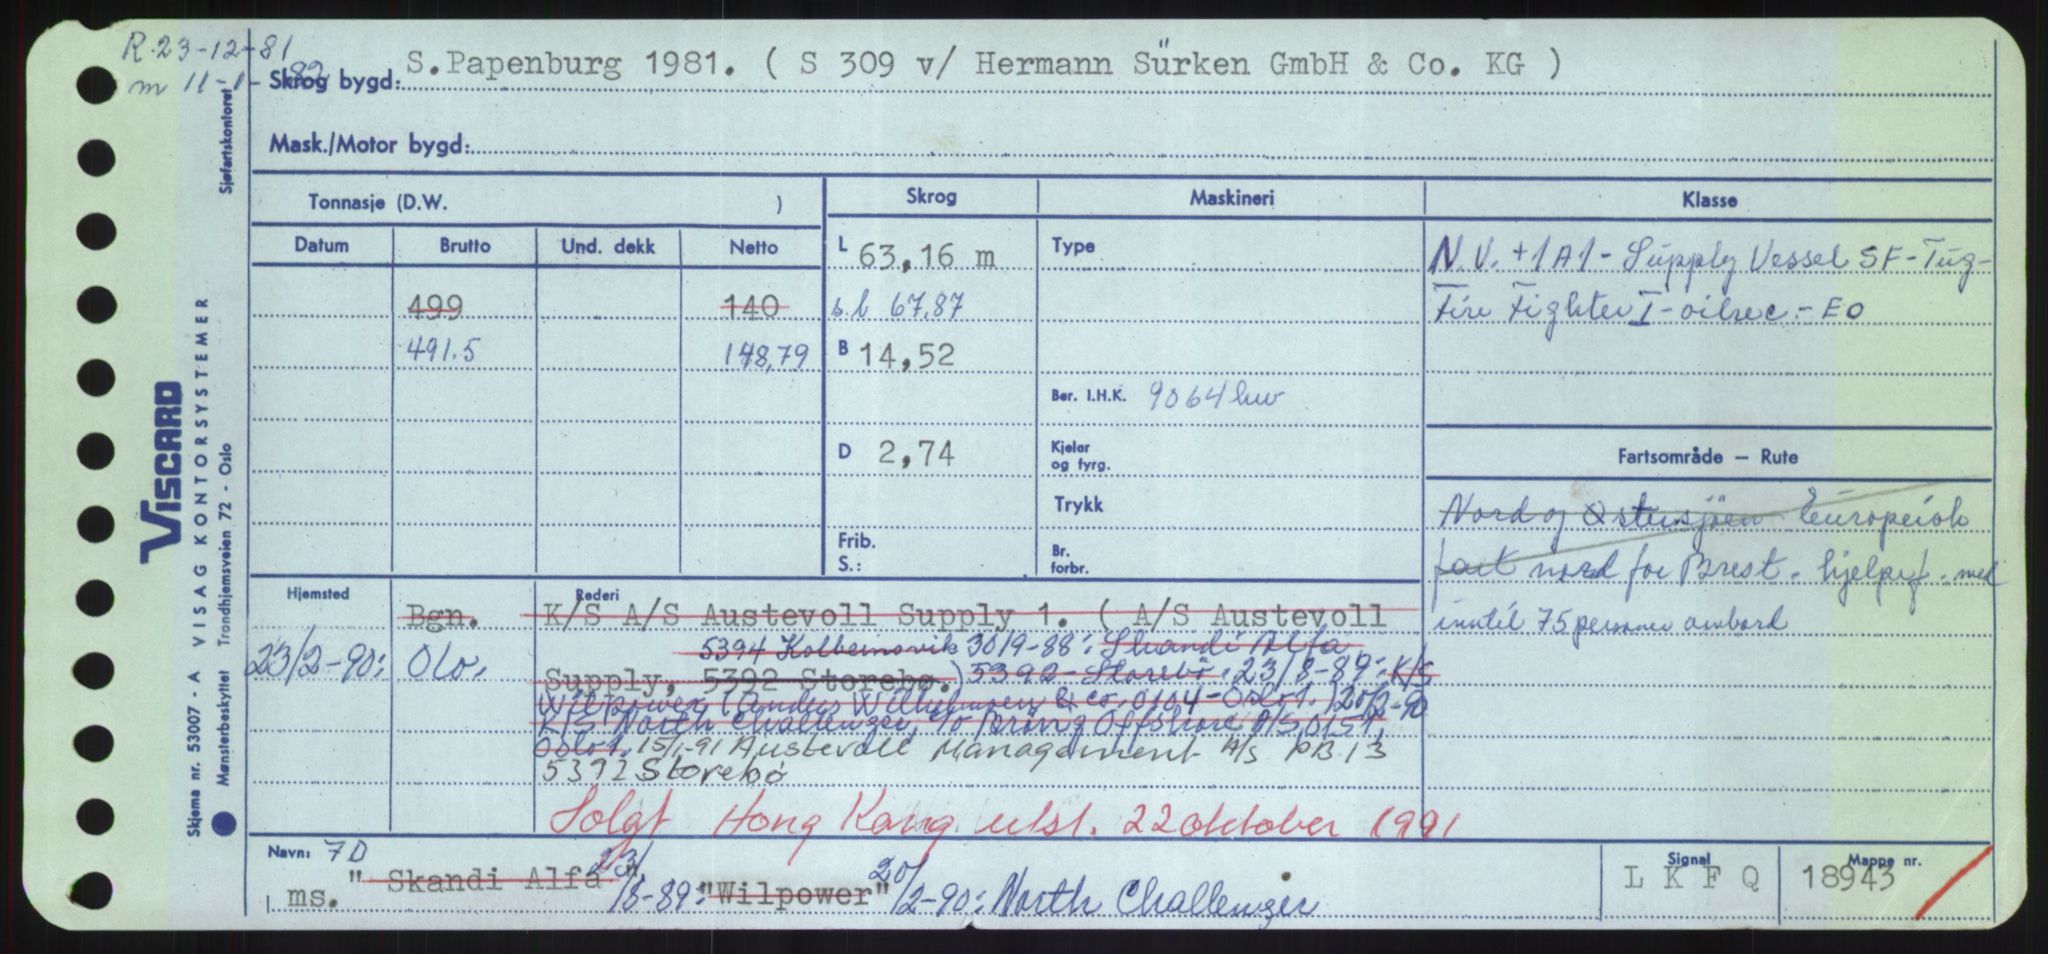 R. 23-12-81
m 11-1-82
Skrog bygd: S.Papenburg 1981. ( S 309 v/ Hermann Sürken GmbH & Co. KG )
Mask./Motor bygd:
Sjøfartskontoret
Tonnasje (D.W. )
Skrog
Maskineri
Klasse
Datum Brutto Und. dekk Netto
499 140
491.5 148,79
L 63,16 m
b.l. 67,87
B 14,52
D 2,74
Frib.
S.:
Type
Ber. I.H.K. 9064
Kjeler
og fyrg.
Trykk
Br.
forbr.
N.V. +1A1 - Supply Vessel SF - Tug -
Fire Fighter I - oilrec. - EO
Fartsområde — Rute
Nord og Østersjøen Europeisk
fart nord for Brest. hjelpef. med
inntil 75 personer ombord
Hjemsted
Bgn.
23/2-90: Olo.
Rederi
K/S A/S Austevoll Supply 1. ( A/S Austevoll
5394 Kolbeinsvik 30/9-88: Skandi Alfa
Supply, 5392 Storebø.) 5392 Storebø. 23/8-89: K/S
Wilpower (Anders Wilhelmsen & co. 0104 - Oslo 1.) 20/2-90
K/S North Challenger, c/o Bring Offshore A/S, 0151
Oslo 1. 15/1-91 Austevoll Management A/S PB. 13
5392 Storebø
Solgt Hong Kong utsl. 22 oktober 1991
Navn: 7D
ms. "Skandi Alfa" 23/8-89: "Wilpower" 20/2-90: North Challenger
Signal
L K F Q
Mappe nr.
18943
VISCARD
VISAG KONTORSYSTEMER
Skjema nr. 53007 - A
Mønsterbeskyttet Trondhjemsveien 72 - Oslo